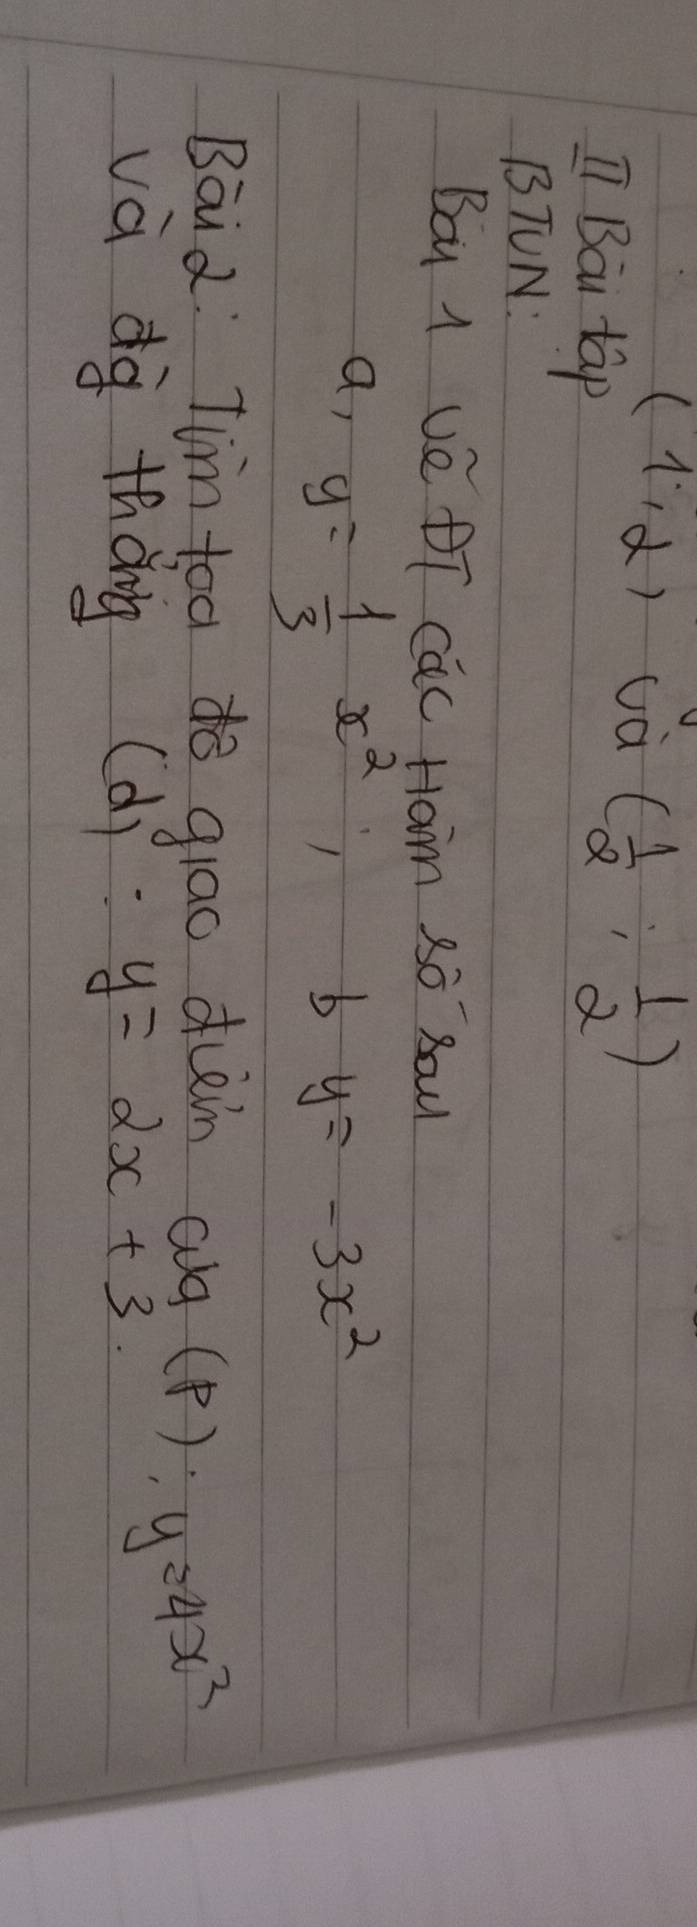 (1; 2) và (1/2; 1/2)
II Bài tập
BTVN:
Bài 1 vẽ ĐT các Hàm số sau
a, y = 1/3 x² ; b y = -3x²
Bài 2: Tìm tọa độ giao điểm của (P): y = 4x²
và đg thẳng (d): y = 2x + 3.